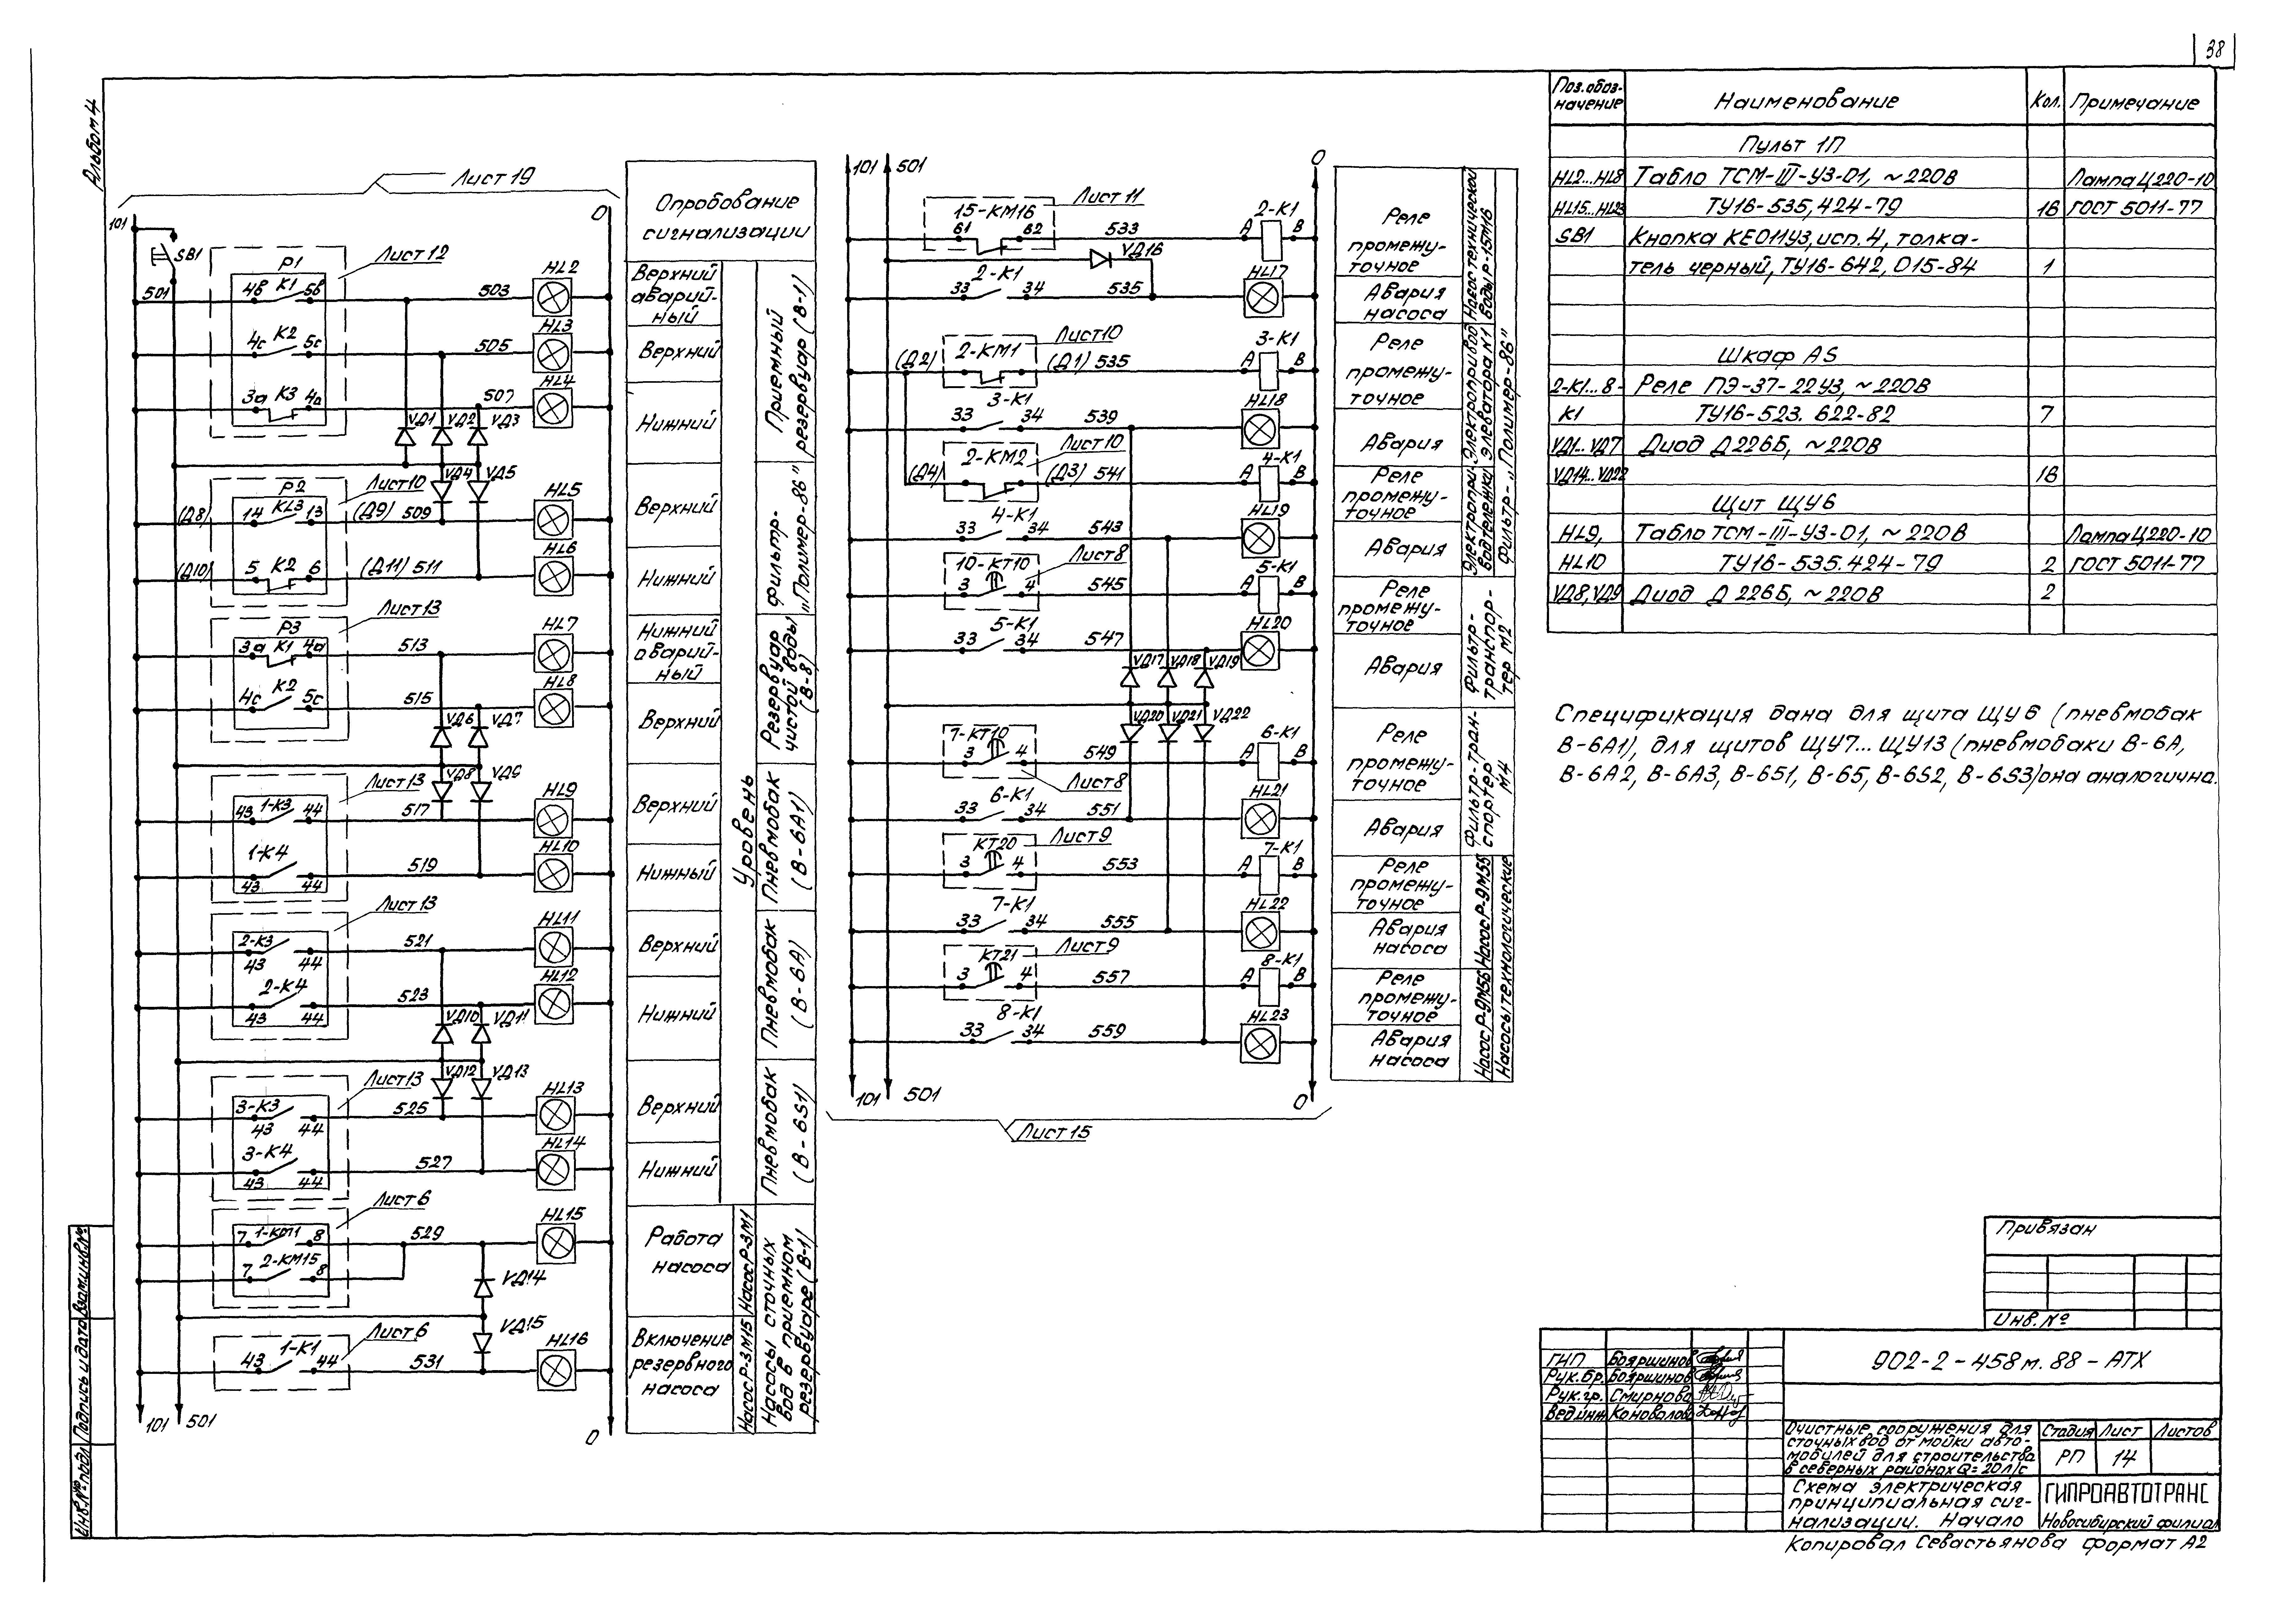 38
Альбом 4
Лист 19
101
0
SB1
501
Опробование
сигнализации
P1
Лист 12
4в К1 5в
503
HL2
Верхний
аварий-
ный
4с К2 5с
505
HL3
Верхний
3а К3 4а
507
HL4
Нижний
VД1 VД2 VД3
Приемный
резервуар (В-1)
VД4 VД5
P2
Лист 10
(Д8) 14 KL3 13 (Д9) 509
HL5
Верхний
(Д10) 5 К2 6 (Д11) 511
HL6
Нижний
Фильтр-
„Полимер-86"
P3
Лист 13
3а К1 4а
513
HL7
Нижний
аварий-
ный
4с К2 5с
515
HL8
Верхний
VД6 VД7
Резервуар
чистой воды
(В-8)
VД8 VД9
Лист 13
43 1-К3 44
517
HL9
Верхний
1-К4
43 44
519
HL10
Нижний
Пневмобак
(В-6А1)
Уровень
Лист 13
2-К3
43 44
521
HL11
Верхний
2-К4
43 44
523
HL12
Нижний
VД10 VД11
Пневмобак
(В-6А)
VД12 VД13
Лист 13
3-К3
43 44
525
HL13
Верхний
3-К4
43 44
527
HL14
Нижний
Пневмобак
(В-6S1)
Лист 6
7 1-КМ1 8
529
HL15
Работа
насоса
7 2-КМ15 8
VД14
VД15
Лист 6
1-К1
43 44
531
HL16
Включение
резервного
насоса
Насос Р-3М15 Насос Р-3М1
Насосы сточных
вод в приемном
резервуаре (В-1)
101 501
0
101 501
0
Лист 11
15-КМ16
61 62
533
2-К1
А В
Реле
промежу-
точное
VД16
2-К1
33 34
535
HL17
Авария
насоса
Насос технической
воды Р-15М16
Лист 10
(Д2) 2-КМ1 (Д1) 535
3-К1
А В
Реле
промежу-
точное
3-К1
33 34
539
HL18
Авария
Электропривод
элеватора К1
Лист 10
2-КМ2
(Д4) (Д3) 541
4-К1
А В
Реле
промежу-
точное
4-К1
33 34
543
HL19
Авария
Электропри-
вод тележки
Фильтр-„Полимер-86"
Лист 8
10-КТ10
3 4
545
5-К1
А В
Реле
промежу-
точное
5-К1
33 34
547
HL20
Авария
VД17 VД18 VД19
Фильтр-
транспор-
тер М2
VД20 VД21 VД22
7-КТ10
3 4
549
Лист 8
6-К1
А В
Реле
промежу-
точное
6-К1
33 34
551
HL21
Авария
Фильтр-тран-
спортер
М4
Лист 9
КТ20
3 4
553
7-К1
А В
Реле
промежу-
точное
7-К1
33 34
555
HL22
Авария
насоса
Насос Р-9М55
Лист 9
КТ21
3 4
557
8-К1
А В
Реле
промежу-
точное
8-К1
33 34
559
HL23
Авария
насоса
Насос Р-9М56
Насосы технологические
101 501
0
Лист 15
Поз.обоз-
начение Наименование Кол. Примечание
Пульт 1П
HL2...HL8 Табло ТСМ-III-У3-01, ~220В Лампа Ц220-10
HL15...HL23 ТУ16-535,424-79 16 ГОСТ 5011-77
SB1 Кнопка КЕ011У3, исп. 4, толка-
тель черный, ТУ16-642, 015-84 1
Шкаф AS
2-К1...8- Реле ПЭ-37-22У3, ~220В
К1 ТУ16-523. 622-82 7
VД1...VД7 Диод Д226Б, ~220В
VД14...VД22 16
Щит ЩУ6
HL9, Табло ТСМ-III-У3-01, ~220В Лампа Ц220-10
HL10 ТУ16-535.424-79 2 ГОСТ 5011-77
VД8, VД9 Диод Д 226Б, ~220В 2
Спецификация дана для щита ЩУ6 (пневмобак
В-6А1), для щитов ЩУ7...ЩУ13 (пневмобаки В-6А,
В-6А2, В-6А3, В-6S1, В-65, В-6S2, В-6S3) она аналогична.
Привязан
Инв.№
902-2-458м.88-АТХ
ГИП Бояршинов
Рук.бр. Бояршинов
Рук.гр. Смирнова
Вед.инж Коновалов
Очистные сооружения для
сточных вод от мойки авто-
мобилей для строительства
в северных районах Q=20л/с
Стадия Лист Листов
РП 14
Схема электрическая
принципиальная сиг-
нализации. Начало
ГИПРОАВТОТРАНС
Новосибирский филиал
Копировал Севастьянова Формат А2
Инв.№ подл. Подпись и дата Взам.инв.№